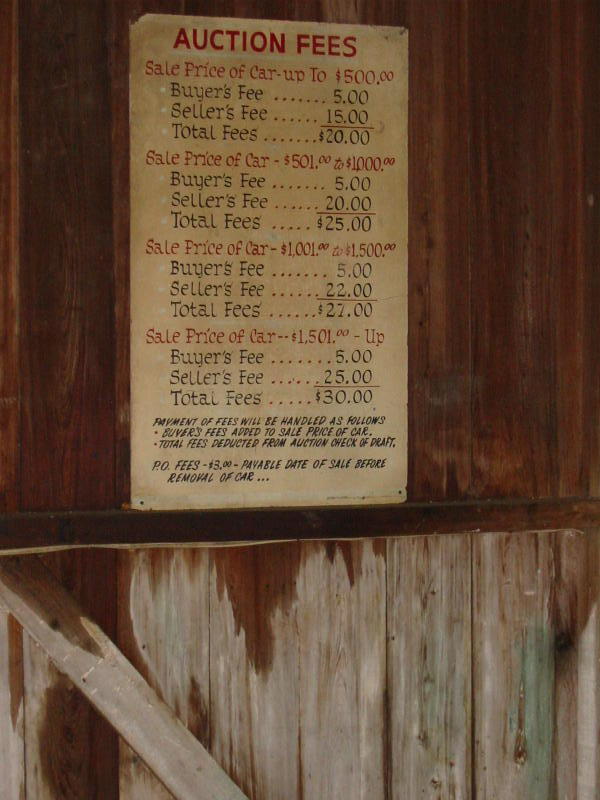 AUCTION FEES
Sale Price of Car-up To $500.00
Buyer's Fee ....... 5.00
Seller's Fee ...... 15.00
Total Fees ....... $20.00
Sale Price of Car - $501.00 to $1000.00
Buyer's Fee ....... 5.00
Seller's Fee ...... 20.00
Total Fees ..... $25.00
Sale Price of Car - $1,001.00 to $1,500.00
Buyer's Fee ....... 5.00
Seller's Fee ...... 22.00
Total Fees ...... $27.00
Sale Price of Car -- $1,501.00 - Up
Buyer's Fee ....... 5.00
Seller's Fee ...... 25.00
Total Fees ..... $30.00
PAYMENT OF FEES WILL BE HANDLED AS FOLLOWS
• BUYER'S FEES ADDED TO SALE PRICE OF CAR.
• TOTAL FEES DEDUCTED FROM AUCTION CHECK OF DRAFT.
P.O. FEES - $3.00 - PAYABLE DATE OF SALE BEFORE
REMOVAL OF CAR ...